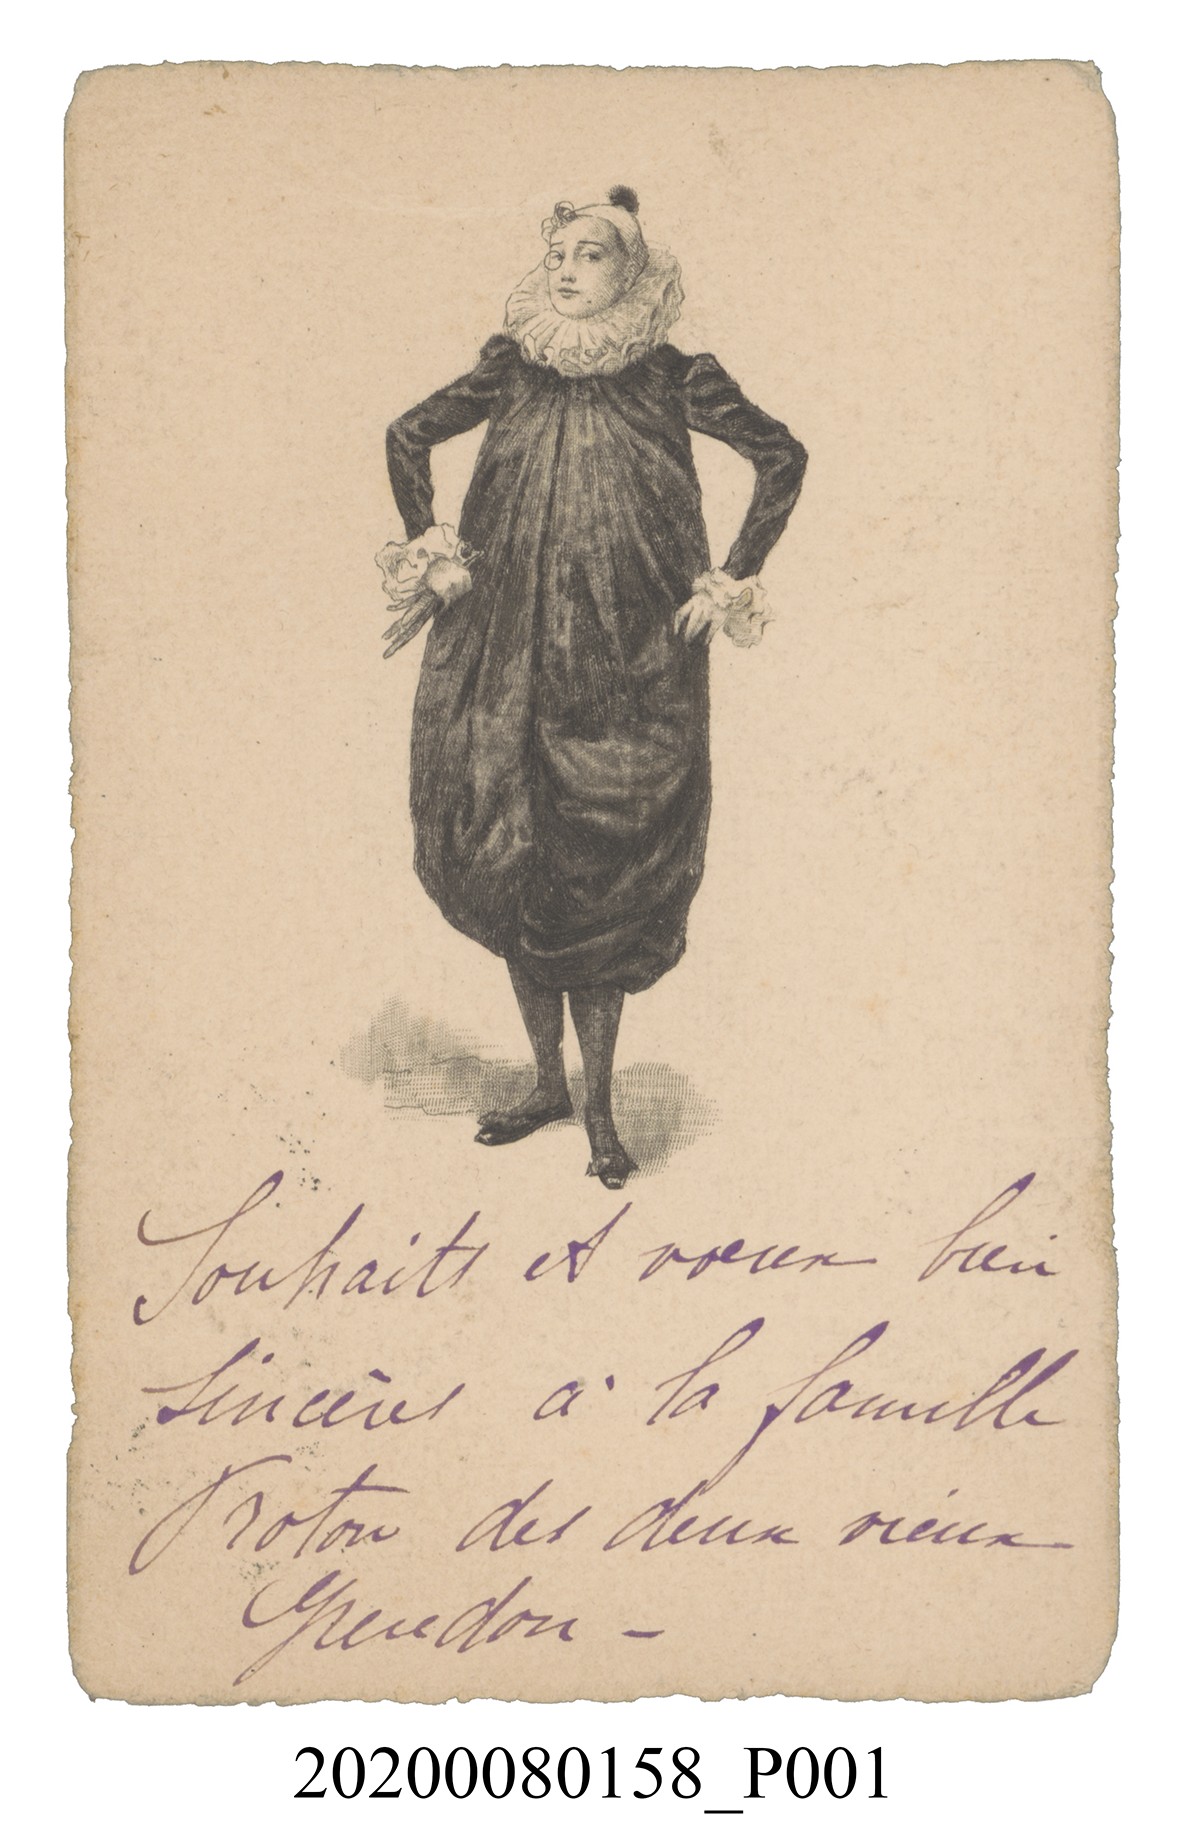 Souhaits et vœux bien
sincères à la famille
Proton des deux vieux
20200080158_P001